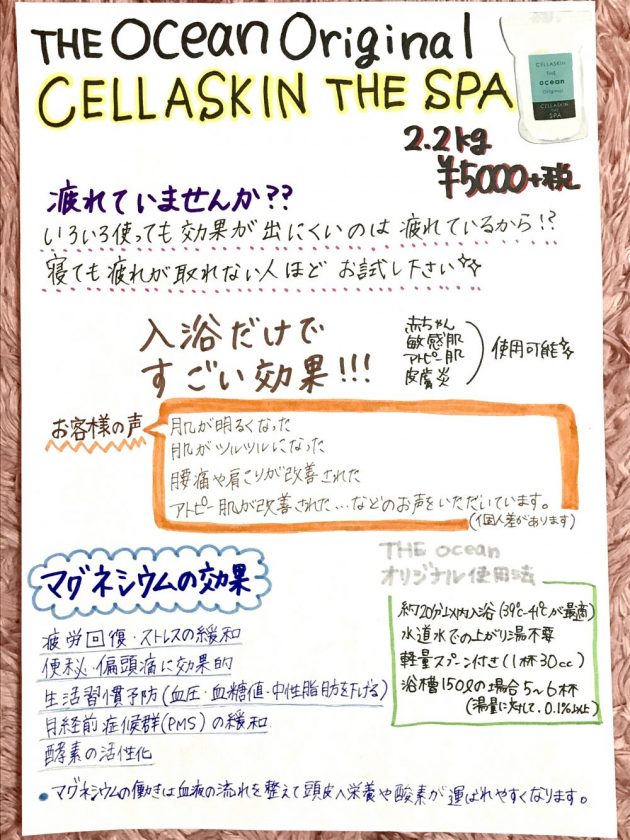 THE Ocean Original
CELLASKIN THE SPA
CELLASKIN
THE
ocean
Original
CELLASKIN
THE
SPA
2.2kg
¥5000+税
疲れていませんか??
いろいろ使っても効果が出にくいのは疲れているから!?
寝ても疲れが取れない人ほど お試し下さい
入浴だけで
すごい効果!!!
赤ちゃん
敏感肌
アトピー肌
皮膚炎
使用可能
お客様の声
肌が明るくなった
肌がツルツルになった
腰痛や肩こりが改善された
アトピー肌が改善された…などのお声をいただいています。
(個人差があります)
マグネシウムの効果
疲労回復・ストレスの緩和
便秘・偏頭痛に効果的
生活習慣予防(血圧・血糖値・中性脂肪を下げる)
月経前症候群(PMS)の緩和
酵素の活性化
THE ocean
オリジナル使用法
約20分以内入浴(39℃-41℃が最適)
水道水での上がり湯不要
軽量スプーン付き(1杯30cc)
浴槽150ℓの場合5~6杯
(湯量に対して.0.1%以上)
●マグネシウムの働きは血液の流れを整えて頭皮へ栄養や酸素が運ばれやすくなります。